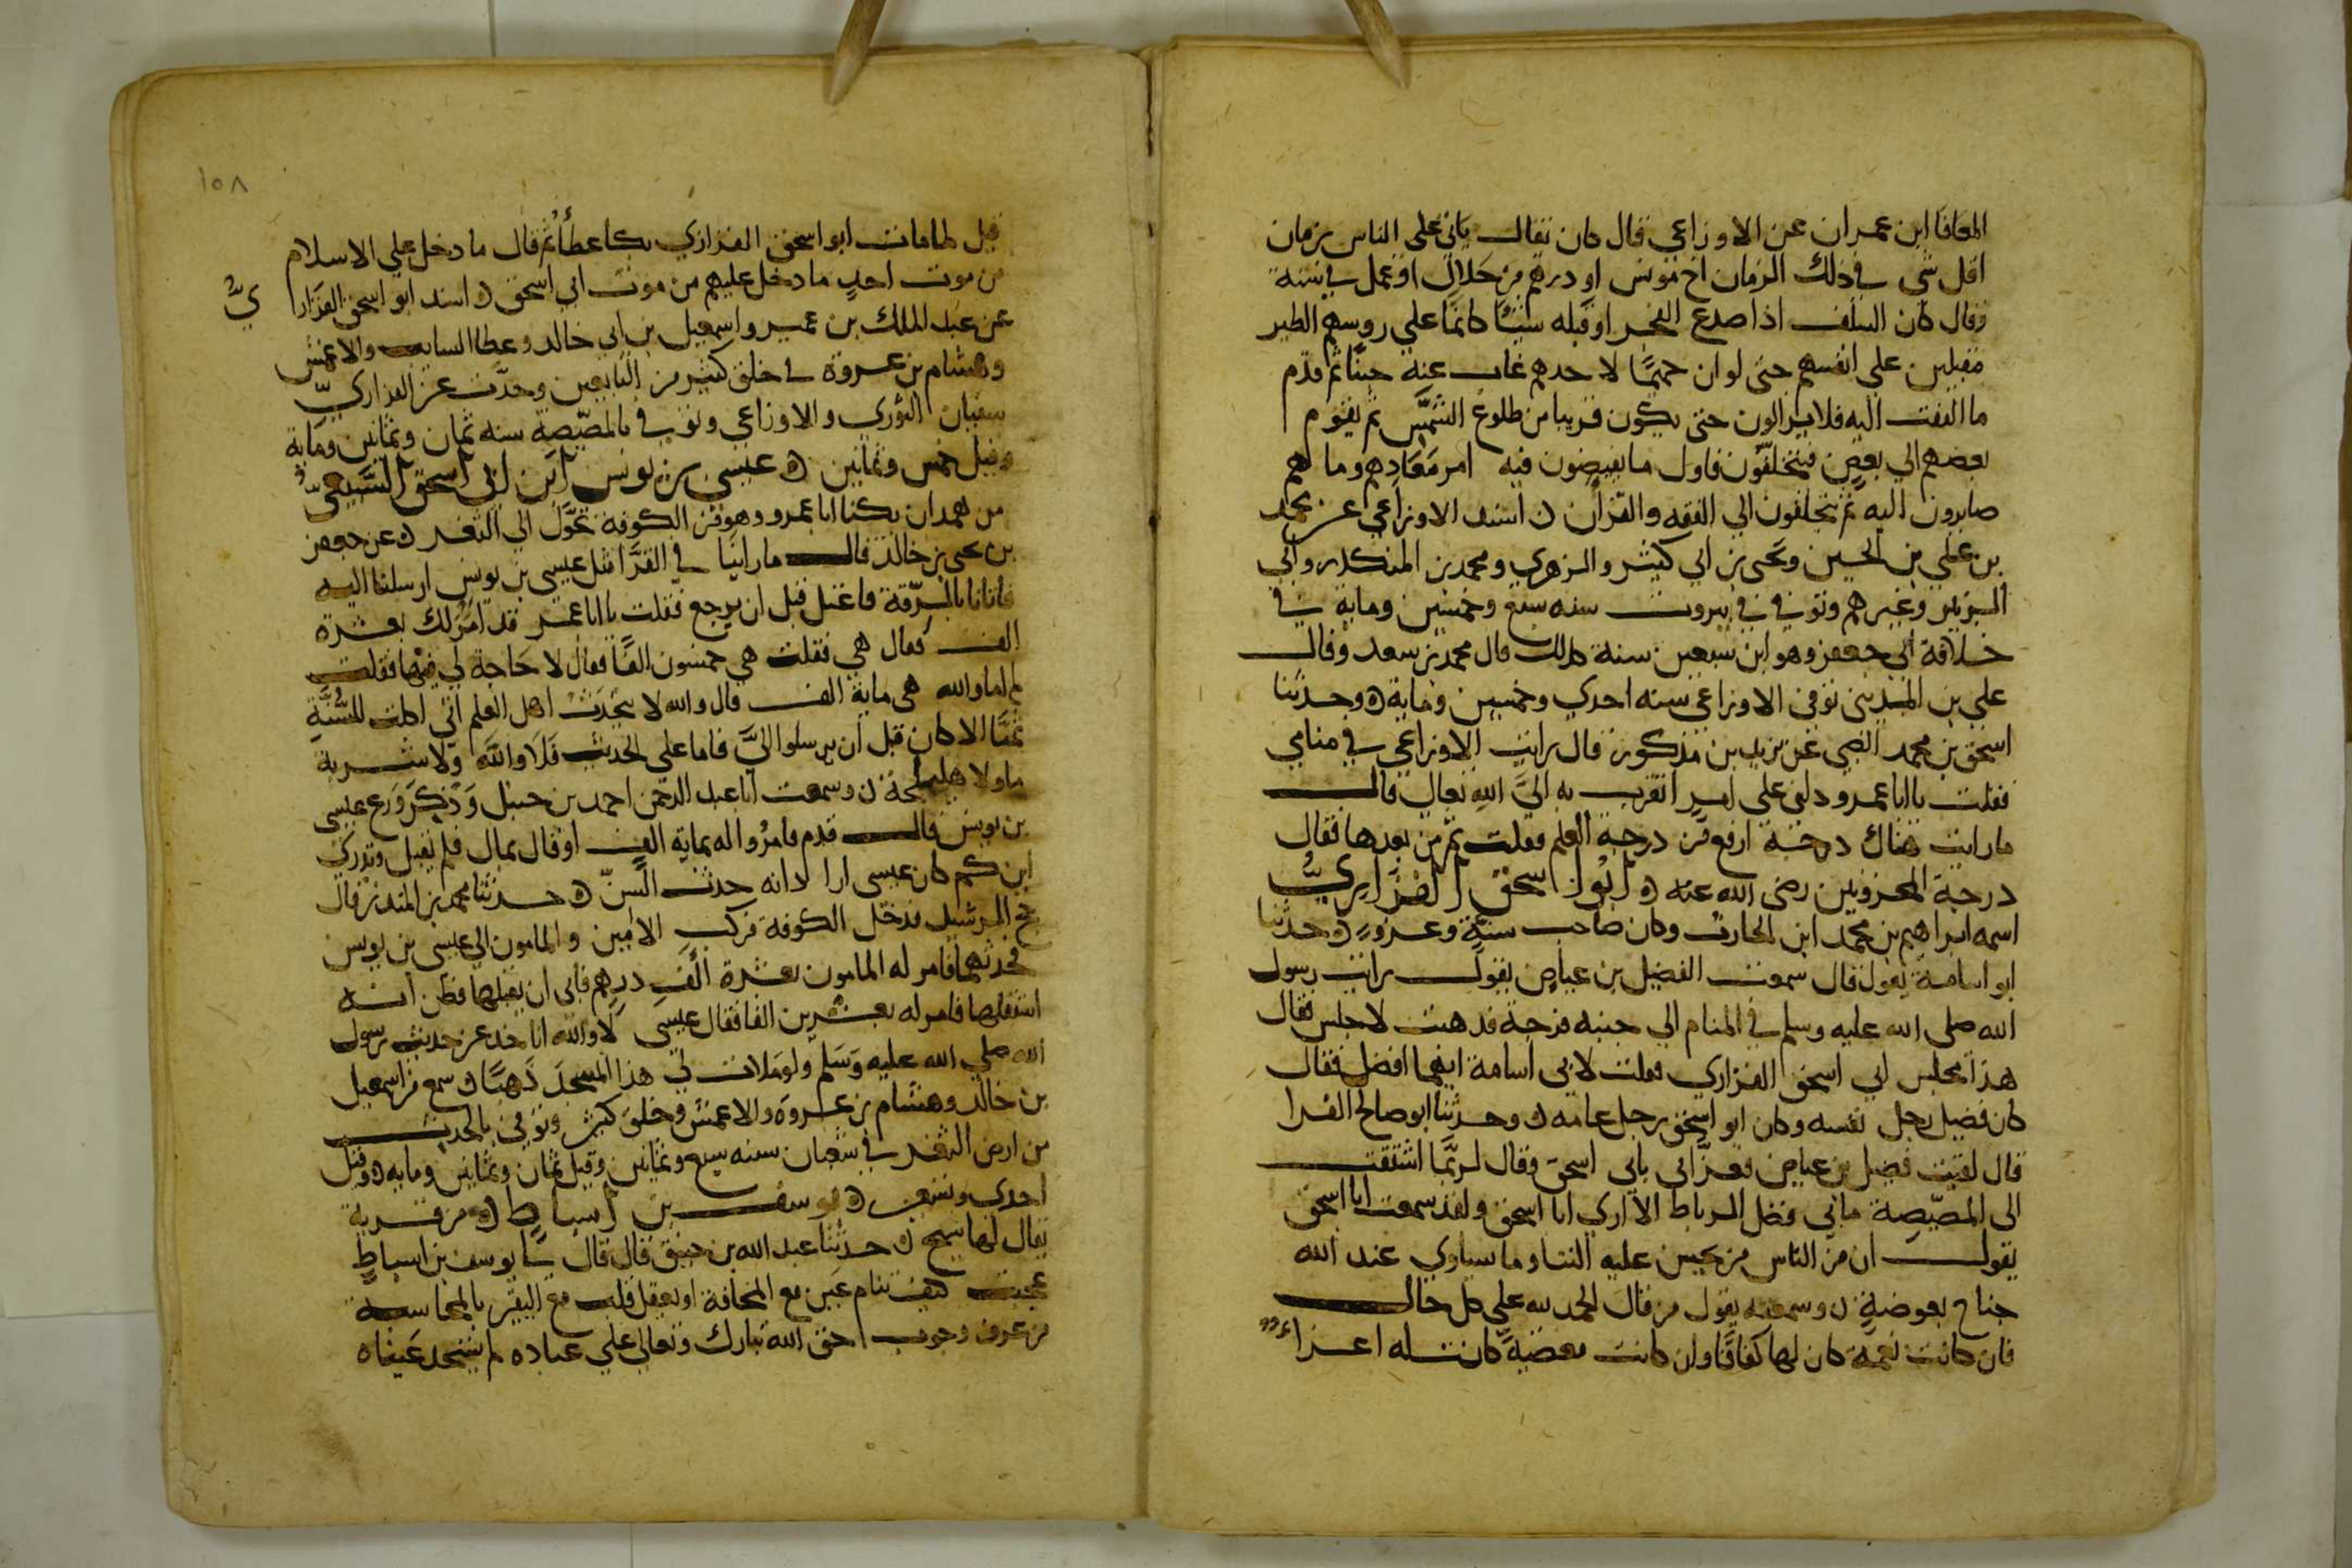 المعافا ابن عمران عن الاوزاعي قال كان يقال ياتي على الناس زمان
اقل شي في ذلك الزمان اخ مونس او درهم من حلال او عمل في سنة
وقال كان السلف اذا صدع الفجر او قبله شيئا كانما على روسهم الطير
مقبلين على انفسهم حتى لو ان حميما لاحدهم غاب عنه حينا ثم قدم
ما التفت اليه فلا يزالون حتى يكون قريبا من طلوع الشمس ثم يقوم
بعضهم الي بعض فيتحلقون فاول ما يفيضون فيه امر معادهم وما هم
صايرون اليه ثم يتحلقون الي الفقه والقران اسند الاوزاعي عن محمد
بن علي بن الحسين ويحيى بن ابي كثير والزهري ومحمد بن المنكدر وابي
الزبير وغيرهم وتوفي في بيروت سنه سبع وخمسين وماية في
خلافة ابي جعفر وهو ابن سبعين سنة كذلك قال محمد بن سعد وقال
علي بن المديني توفي الاوزاعي سنه احدي وخمسين وماية وحدثنا
اسحق بن محمد الضبي عن يزيد بن مذكور قال رايت الاوزاعي في منامي
فقلت يا ابا عمرو دلني على امر اتقرب به الي الله تعالى قال
ما رايت هناك درجة ارفع من درجة العلم فقلت ثم من بعدها فقال
درجة المحزونين رضي الله عنه ابو اسحق الفزاري
اسمه ابراهيم بن محمد ابن الحارث وكان صاحب سنة وغزو حدثنا
ابو اسامة يقول قال سمعت الفضيل بن عياض يقول رايت رسول
الله صلى الله عليه وسلم في المنام الي جنبه فرجة فذهبت لاجلس فقال
هذا مجلس ابي اسحق الفزاري فقلت لابي اسامة ايهما افضل فقال
كان فضيل رجل نفسه وكان ابو اسحق رجل عامه وحدثنا ابو صالح الفرا
قال لقيت فضيل بن عياض فعزاني بابي اسحق وقال لربما اشتقت
الى المصيصة ما بي فضل الرباط الا اري ابا اسحق ولقد سمعت ابا اسحق
يقول ان من الناس من يحسن عليه الثنا وما يساوي عند الله
جناح بعوضة وسمعته يقول من قال الحمد لله على كل حال
فان كانت نعمة كان لها كفافا وان كانت مصيبة كان له اعزاء
١٥٨
قيل لما مات ابو اسحق الفزاري بكا عطاء ثم قال ما دخل علي الاسلام
من موت احد ما دخل عليهم من موت ابي اسحق اسند ابو اسحق الفزاري
عن عبد الملك بن عمير واسمعيل بن ابي خالد وعطا السايب والاعمش
وهشام بن عروة في خلق كثير من التابعين وحدث عن الفزاري
سفيان الثوري والاوزاعي وتوفي بالمصيصة سنه ثمان وثمانين وماية
وقيل خمس وثمانين عيسى بن يونس ابن ابي اسحق السبيعي
من همدان يكنا ابا عمرو وهو من الكوفة تحول الي الثغر عن جعفر
بن يحيى بن خالد قال ما راينا في القرا مثل عيسي بن يونس ارسلنا اليه
فاتانا بالرقة فاعتل قبل ان يرجع فقلت يا ابا عمر قد امر لك بعشرة
الف فقال هي فقلت هي خمسون الفا فقال لا حاجة لي فيها فقلت
لم اما والله هي ماية الف قال والله لا يتحدث اهل العلم اني اكلت للسنة
ثمنا الا كان قبل ان يرسلوا الي فاما على الحديث فلا والله ولا شربة
ما ولا هليلجة وسمعت ابا عبد الرحمن احمد بن حنبل وذكر ورع عيسى
بن يونس قال قدم فامروا له بماية الف او قال بمال فلم يقبل وتدري
ابن كم كان عيسى اراد انه حدث السن حدثنا محمد بن المنذر قال
حج الرشيد فدخل الكوفة فركب الامين والمامون الي عيسى بن يونس
فحدثهما فامر له المامون بعشرة الف درهم فابى ان يقبلها فظن انه
استقلها فامر له بعشرين الفا فقال عيسى لا والله اناخد عن حديث رسول
الله صلي الله عليه وسلم ولو ملات لي هذا المسجد ذهبا سمع من اسمعيل
بن خالد وهشام بن عروة والاعمش وخلق كثير وتوفي بالحدث
من ارض الثغر في شعبان سنه سبع وثمانين وقيل ثمان وثمانين وماية وقيل
احدى وتسعين يوسف بن اسباط من قرية
يقال لها سيحح حدثنا عبد الله بن خبيق قال قال لنا يوسف بن اسباط
عجبت كيف تنام عين مع المخافة او يعقل قلب مع اليقين بالمحاسبة
من عرف وجوب حق الله تبارك وتعالى علي عباده لم يستحد عيناه